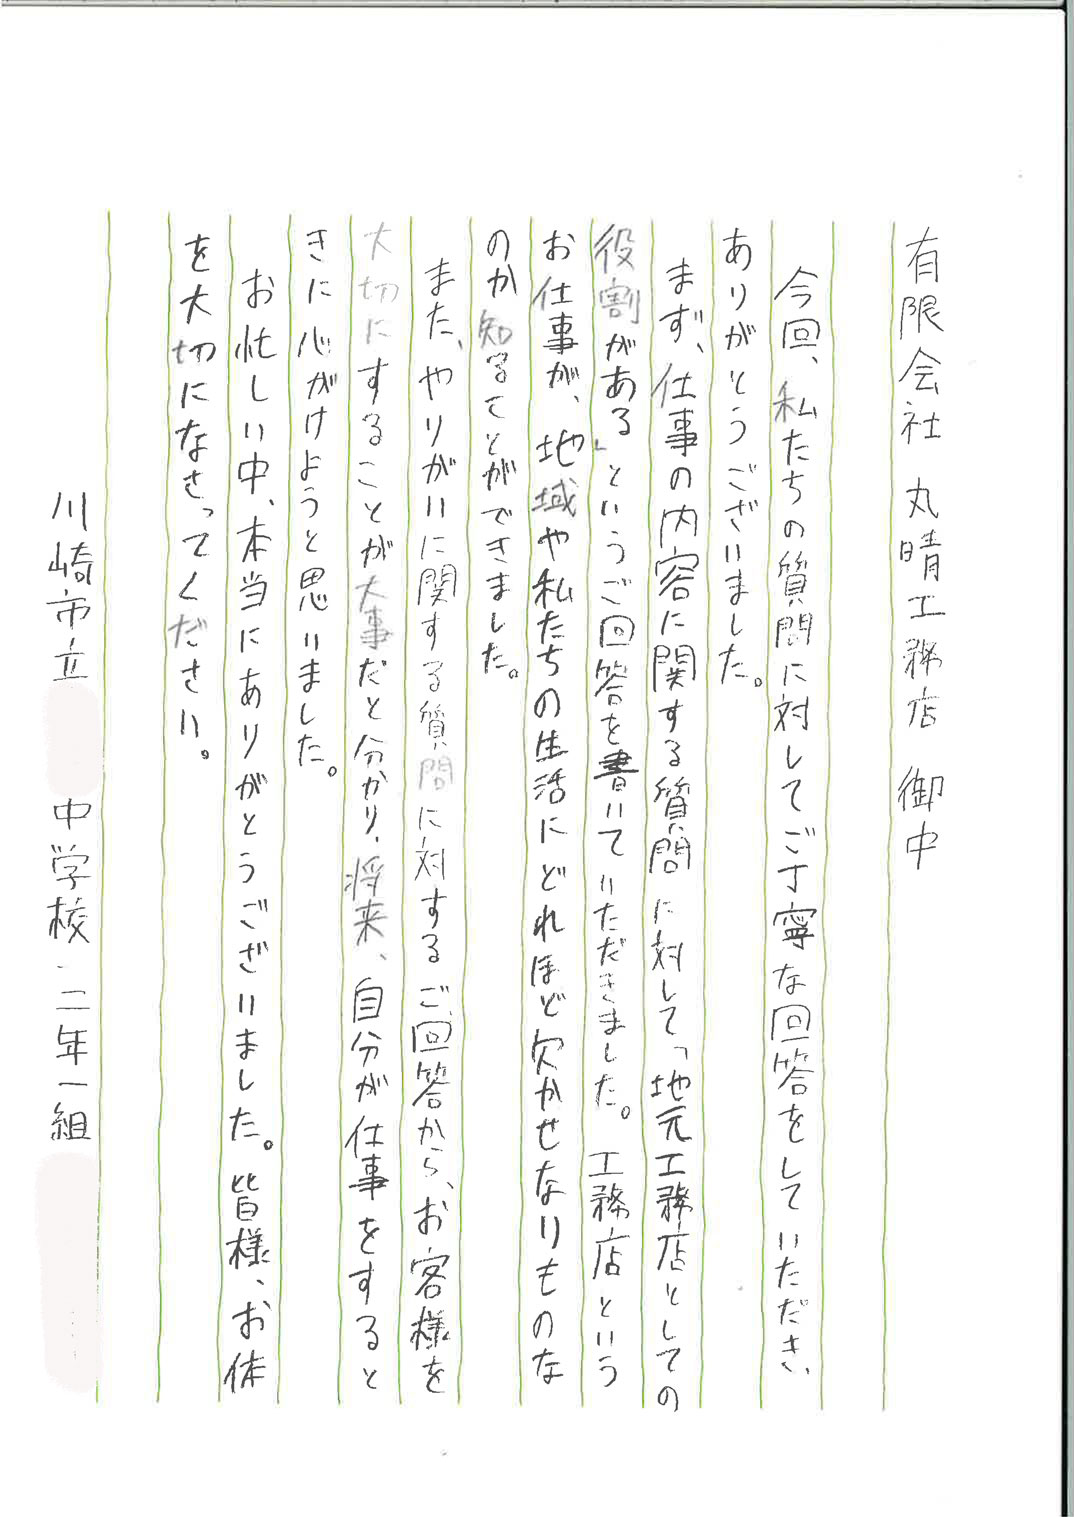 有限会社 丸晴工務店 御中
今回、私たちの質問に対してご丁寧な回答をしていただき、
ありがとうございました。
まず、仕事の内容に関する質問に対して「地元工務店としての
役割がある」というご回答を書いていただきました。工務店という
お仕事が、地域や私たちの生活にどれほど欠かせないものな
のか知ることができました。
また、やりがいに関する質問に対するご回答から、お客様を
大切にすることが大事だと分かり、将来、自分が仕事をすると
きに心がけようと思いました。
お忙しい中、本当にありがとうございました。皆様、お体
を大切になさってください。
川崎市立 中学校 二年一組